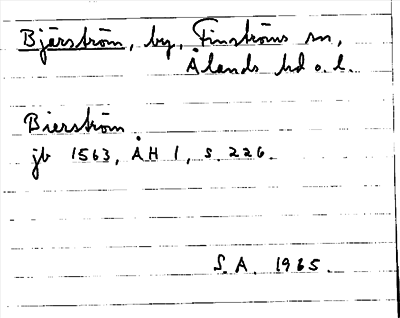 Bjärström, by, Finströms sn,
Ålands hd o. l.
Bierström
jb 1563, ÅH 1, s. 226.
S. A. 1965.